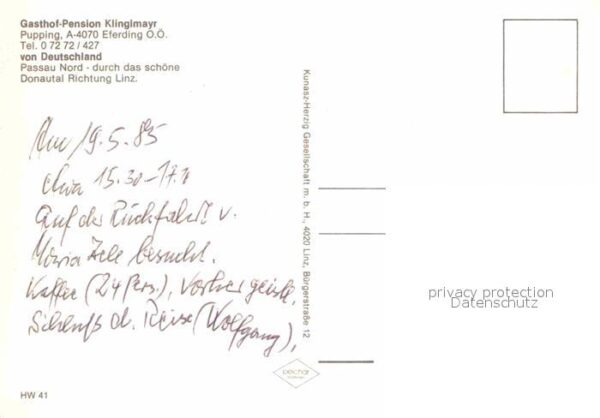 Gasthof-Pension Klinglmayr
Pupping, A-4070 Eferding O.Ö.
Tel. 0 72 72 / 427
von Deutschland
Passau Nord - durch das schöne
Donautal Richtung Linz.
Am 19.5.85
etwa 15.30-17.
Auf der Rückfahrt v.
Maria Zell besucht.
Kaffee (24 Pers.), Vorher geistl.
Schluß d. Reise (Wolfgang),
Kunasz-Herzig Gesellschaft m. b. H., 4020 Linz, Bürgerstraße 12
privacy protection
Datenschutz
HW 41